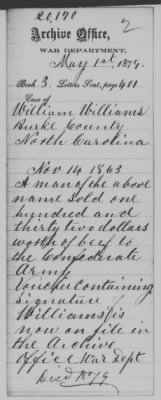 20,170
2
Archive Office,
WAR DEPARTMENT,
May 1st, 1879.
Book 3. Letters Sent, page 401
Case of
William Williams
Burke County
North Carolina
Nov 14 1863
A man of the above
name sold one
hundred and
thirty two dollars
worth of beef to
the Confederate
Army
Voucher containing
signature
Williams is
now on file in
the Archive
Office War Dept